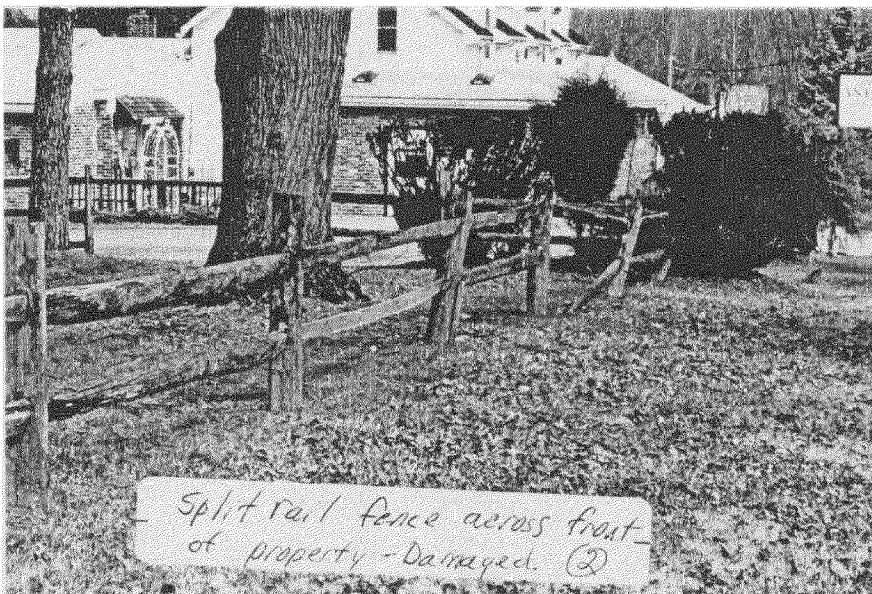 Split rail fence across front
of property - Damaged. ②